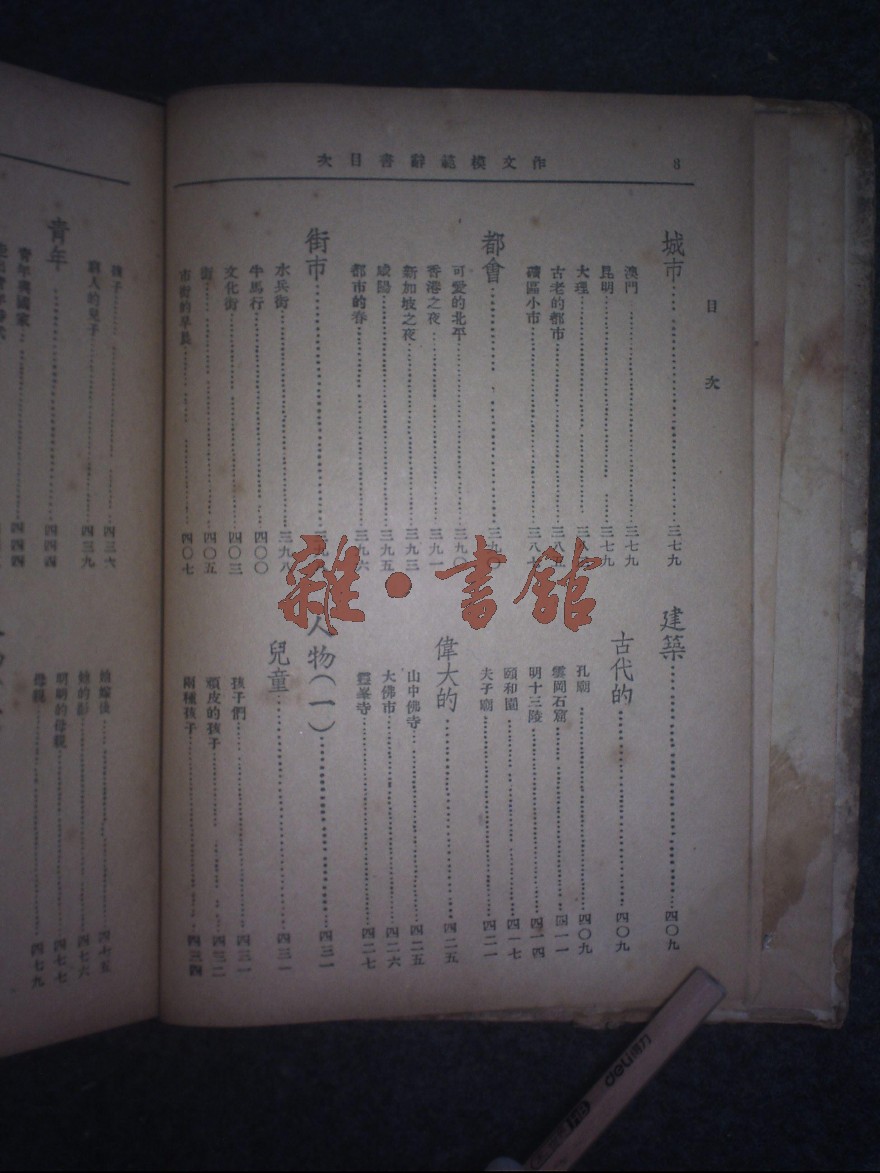 作文模範辭書目次
8
目次
城市 三七九
澳門 三七九
昆明 三七九
大理
古老的都市 三八五
礦區小市 三八七
都會
可愛的北平 三九〇
香港之夜 三九一
新加坡之夜 三九三
咸陽 三九五
都市的春 三九六
街市
水兵街 三九八
牛馬行 四〇〇
文化街 四〇三
街 四〇五
市街的早晨 四〇七
建築 四〇九
古代的 四〇九
孔廟 四〇九
雲岡石窟 四一一
明十三陵 四一四
頤和園 四一七
夫子廟 四二一
偉大的 四二五
山中佛寺 四二五
大佛市 四二六
靈峯寺 四二七
人物(一) 四三一
兒童 四三一
孩子們 四三一
頑皮的孩子 四三二
兩種孩子 四三四
孩子 四三六
窮人的兒子 四三九
青年 四四四
青年與國家 四四四
她的影 四七六
明明的母親 四七七
母親 四七九
雜·書館
deli得力